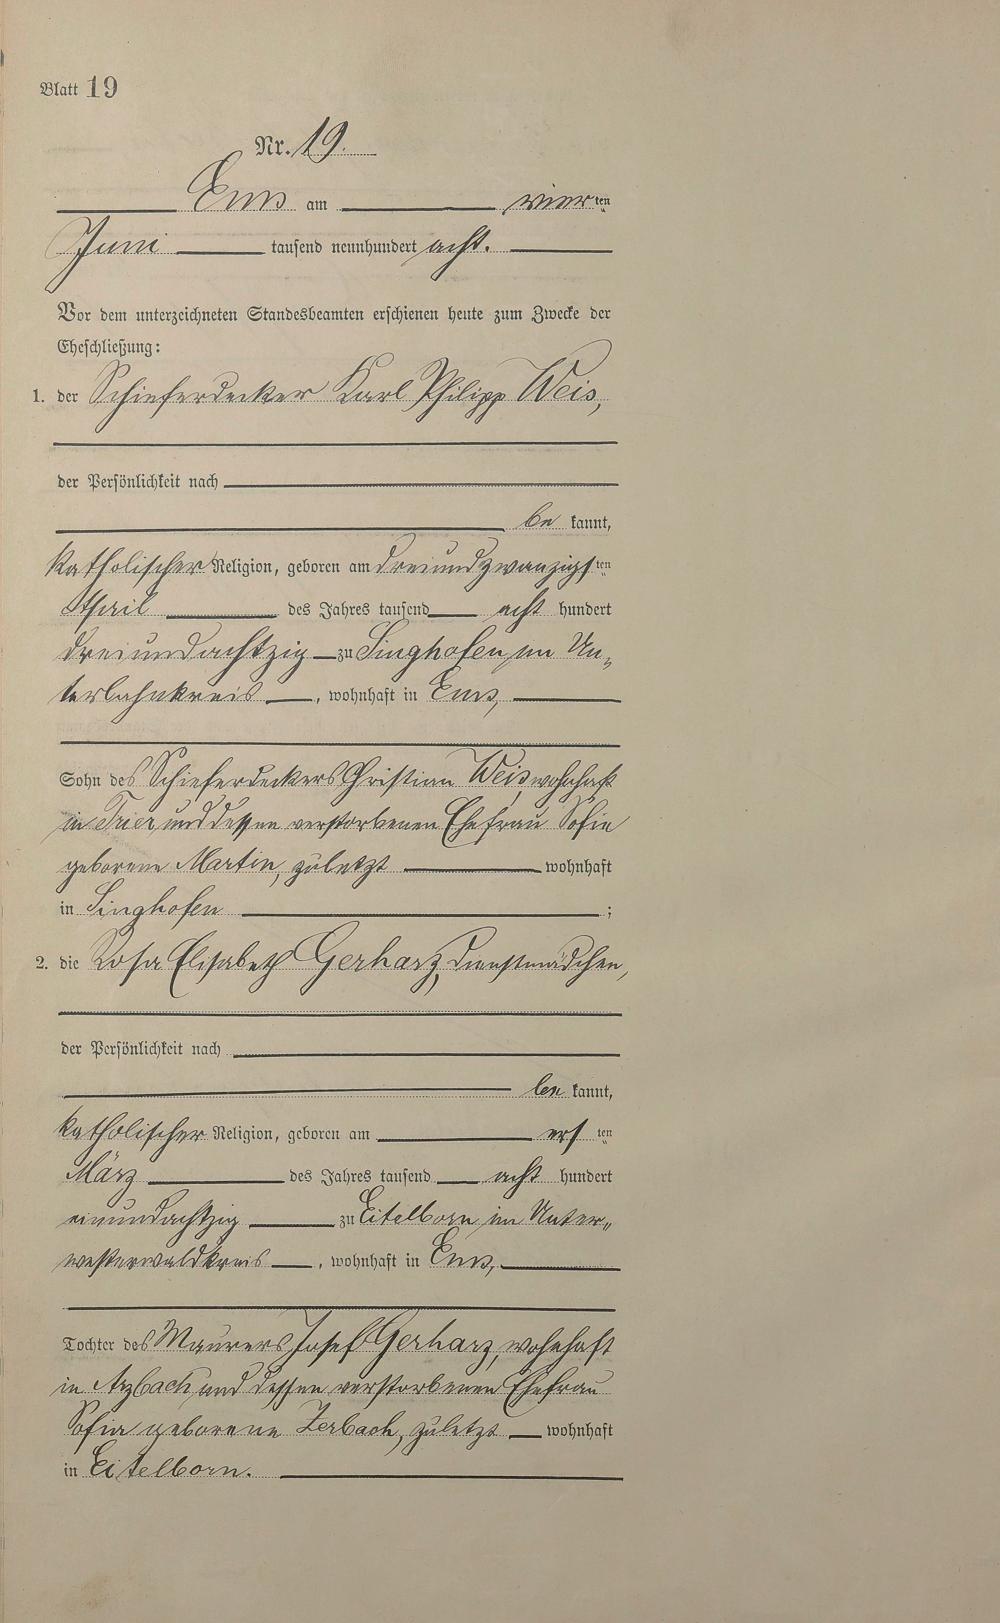 Blatt 19
Nr. 19.
Ems am vierten
Juni tausend neunhundert acht.
Vor dem unterzeichneten Standesbeamten erschienen heute zum Zwecke der
Eheschließung:
1. der Schieferdecker Karl Philipp Weis,
der Persönlichkeit nach
be kannt,
katholischer Religion, geboren am dreiundzwanzigsten
April des Jahres tausend acht hundert
dreiundachtzig zu Singhofen im Un„
terlahnkreis, wohnhaft in Ems,
Sohn des Schieferdeckers Christian Weis, wohnhaft
in Trier, und dessen verstorbenen Ehefrau Sofie
geborene Martin, zuletzt wohnhaft
in Singhofen ;
2. die Rosa Elisabeth Gerharz, Dienstmädchen,
der Persönlichkeit nach
be kannt,
katholischer Religion, geboren am ersten
März des Jahres tausend acht hundert
einundachtzig zu Eitelborn im Unter„
westerwaldkreis, wohnhaft in Ems,
Tochter des Maurers Josef Gerharz, wohnhaft
in Arzbach, und dessen verstorbenen Ehefrau
Sofia geborene Zerbach, zuletzt wohnhaft
in Eitelborn.